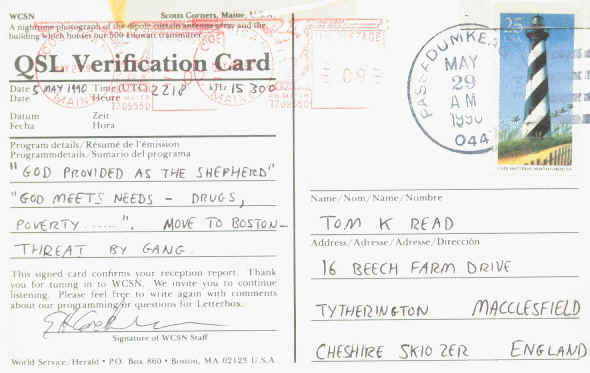 WCSN Scotts Corners, Maine,
A nighttime photograph of the dipole curtain antenna array and the
building which houses our 500 kilowatt transmitter.
QSL Verification Card
Date 5 MAY 1990 Time (UTC) 2218 kHz 15 300
Date Heure
Datum Zeit
Fecha Hora
Program details/Résumé de l'émission
Programmdetails/Sumario del programa
"GOD PROVIDED AS THE SHEPHERD"
"GOD MEETS NEEDS - DRUGS,
POVERTY ......". MOVE TO BOSTON-
THREAT BY GANG.
This signed card confirms your reception report. Thank
you for tuning in to WCSN. We invite you to continue
listening. Please feel free to write again with comments
about our programming or questions for Letterbox.
Signature of WCSN Staff
World Service/Herald • P.O. Box 860 • Boston, MA 02123 U.S.A.
POSTAGE
09
MAINE
PASSADUMKE
MAY
29
AM
1990
044
25
USA
CAPE HATTERAS, NORTH CAROLINA
Name/Nom/Name/Nombre
TOM K READ
Address/Adresse/Adresse/Dirección
16 BEECH FARM DRIVE
TYTHERINGTON MACCLESFIELD
CHESHIRE SK10 2ER ENGLAND